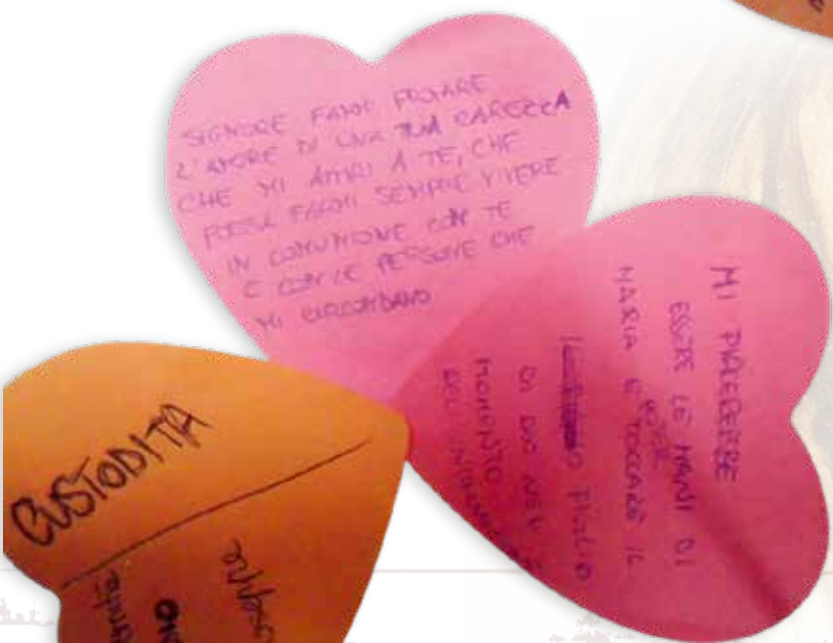 SIGNORE FAMMI PROVARE
L'AMORE DI UNA TUA CAREZZA
CHE MI ATTIRI A TE, CHE
POSSA FARMI SEMPRE VIVERE
IN COMUNIONE CON TE
E CON LE PERSONE CHE
MI CIRCONDANO
MI PIACEREBBE
ESSERE LE MANI DI
MARIA E POTER TOCCARE IL
FIGLIO
DI DIO NEL
MOMENTO
CUSTODITA